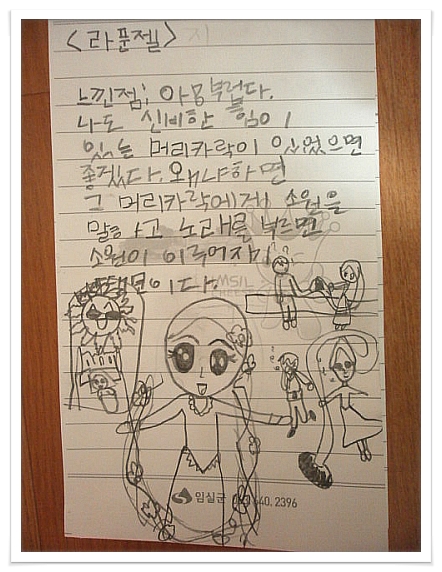 <라푼젤>
느낀점; 아 부럽다.
나도 신비한 힘이
있는 머리카락이 있었으면
좋겠다. 왜냐하면
그 머리카락에게 소원을
말하고 노래를 부르면
소원이 이루어지기
때문이다.
임실군 640.2396